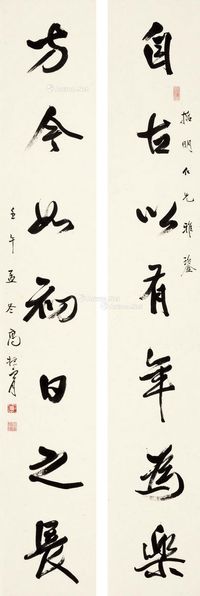 自古以有年為樂
明仁兄雅鑒
方今如初日之長
壬午孟冬高振霄